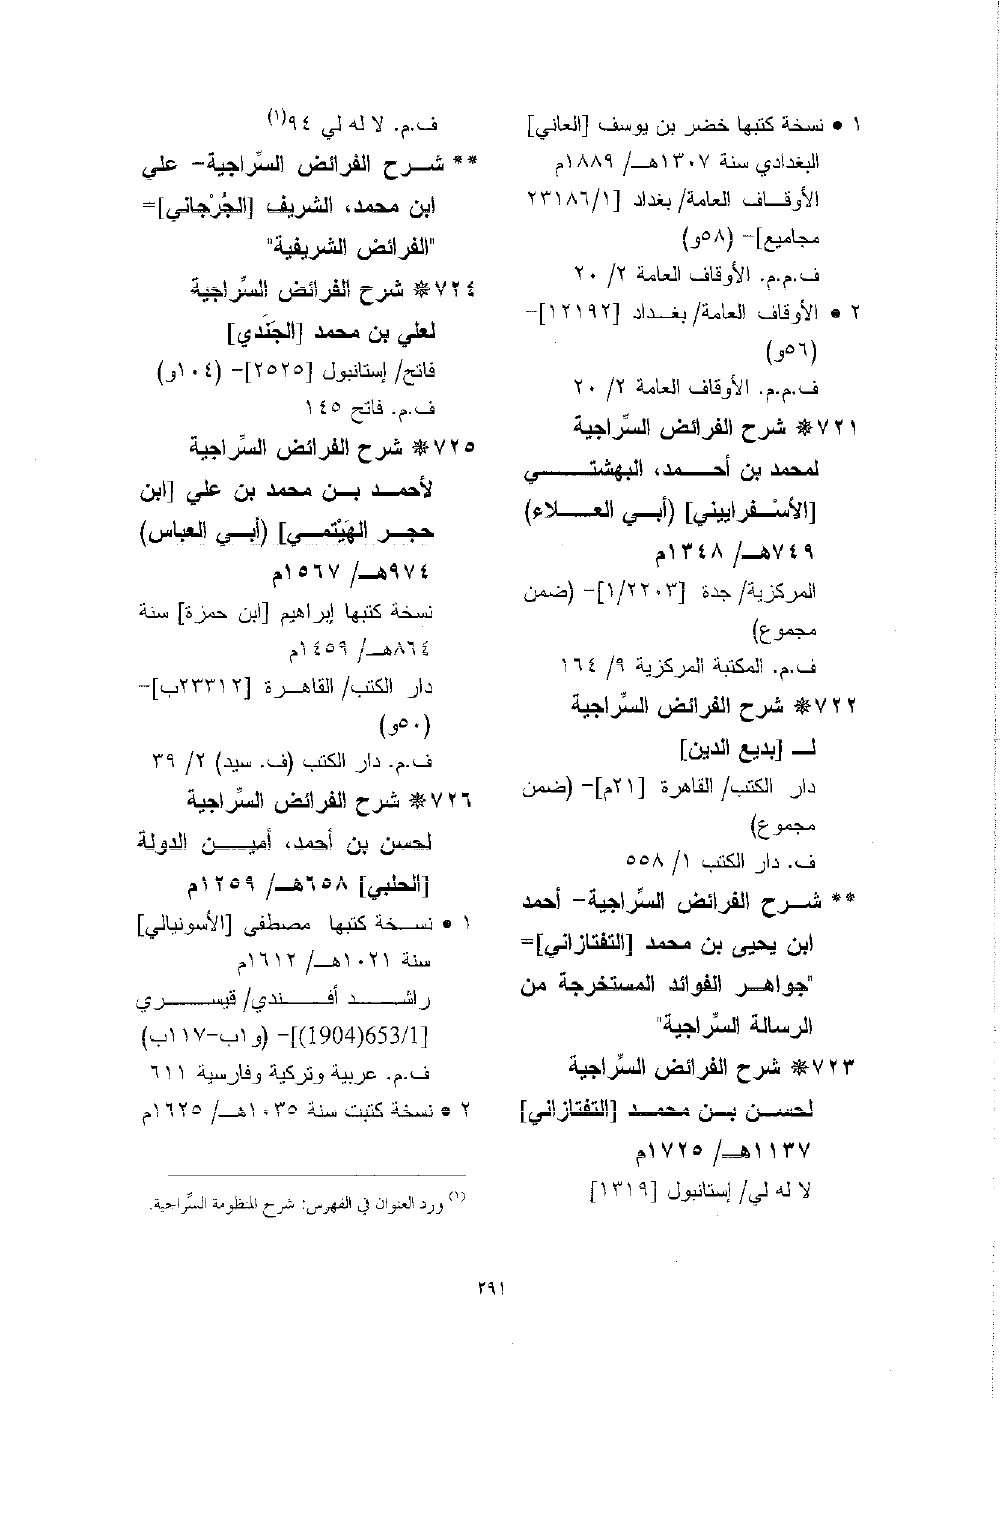 ١ • نسخة كتبها خضر بن يوسف [العاني]
البغدادي سنة ١٣٠٧هـ/ ١٨٨٩م
الأوقاف العامة/ بغداد [٢٣١٨٦/١
مجاميع]- (٥٨و)
ف.م.م. الأوقاف العامة ٢/ ٢٠
٢ • الأوقاف العامة/ بغداد [١٢١٩٢]-
(٥٦و)
ف.م.م. الأوقاف العامة ٢/ ٢٠
٧٢١* شرح الفرائض السِّراجية
لمحمد بن أحمد، البهشتي
[الأسْفراييني] (أبي العلاء)
٧٤٩هـ/ ١٣٤٨م
المركزية/ جدة [١/٢٢٠٣]- (ضمن
مجموع)
ف.م. المكتبة المركزية ٩/ ١٦٤
٧٢٢* شرح الفرائض السِّراجية
لـ [بديع الدين]
دار الكتب/ القاهرة [٢١م]- (ضمن
مجموع)
ف. دار الكتب ١/ ٥٥٨
** شرح الفرائض السِّراجية- أحمد
ابن يحيى بن محمد [التفتازاني]=
"جواهر الفوائد المستخرجة من
الرسالة السِّراجية"
٧٢٣* شرح الفرائض السِّراجية
لحسن بن محمد [التفتازاني]
١١٣٧هـ/ ١٧٢٥م
لا له لي/ إستانبول [١٣١٩]
ف.م. لا له لي ٩٤(١)
** شرح الفرائض السِّراجية- علي
ابن محمد، الشريف [الجُرْجاني]=
"الفرائض الشريفية"
٧٢٤* شرح الفرائض السِّراجية
لعلي بن محمد [الجَنَدي]
فاتح/ إستانبول [٢٥٢٥]- (١٠٤و)
ف.م. فاتح ١٤٥
٧٢٥* شرح الفرائض السِّراجية
لأحمد بن محمد بن علي [ابن
حجر الهَيْتمي] (أبي العباس)
٩٧٤هـ/ ١٥٦٧م
نسخة كتبها إبراهيم [ابن حمزة] سنة
٨٦٤هـ/ ١٤٥٩م
دار الكتب/ القاهرة [٢٣٣١٢ب]-
(٥٠و)
ف.م. دار الكتب (ف. سيد) ٢/ ٣٩
٧٢٦* شرح الفرائض السِّراجية
لحسن بن أحمد، أمين الدولة
[الحلبي] ٦٥٨هـ/ ١٢٥٩م
١ • نسخة كتبها مصطفى [الأسونيالي]
سنة ١٠٢١هـ/ ١٦١٢م
راشد أفندي/ قيسري
[653/1(1904)]- (و١ب-١١٧ب)
ف.م. عربية وتركية وفارسية ٦١١
٢ • نسخة كتبت سنة ١٠٣٥هـ/ ١٦٢٥م
(١) ورد العنوان في الفهرس: شرح المنظومة السِّراجية.
٢٩١